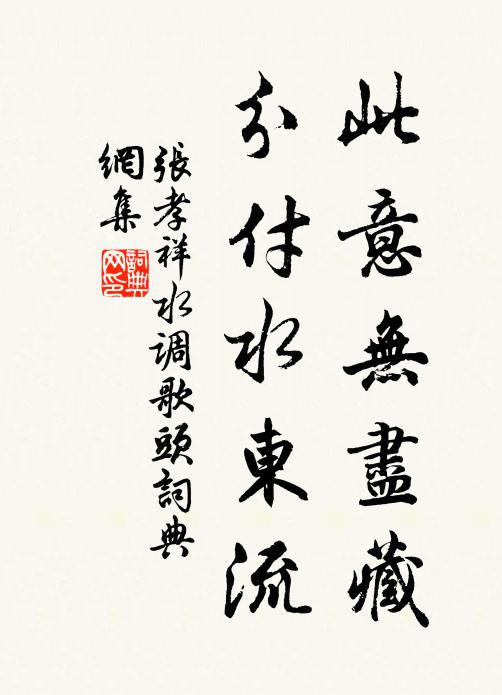 此意無盡藏
分付水東流
張孝祥水调歌頭詞典
網集
詞典网印